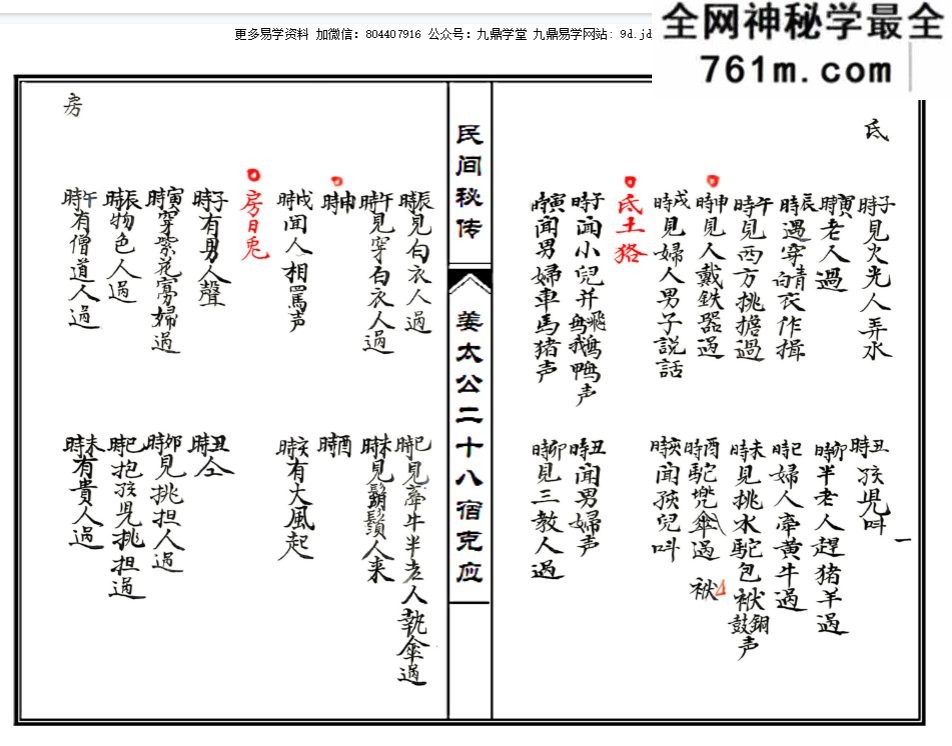 更多易学资料 加微信：804407916 公众号：九鼎学堂 九鼎易学网站：9d.jd
全网神秘学最全
761m.com
氐
子時見火光人弄水
丑時孩児叫
一
寅時老人過
卯時半老人趕猪羊過
辰時遇穿青白衣作揖
巳時婦人牽黄牛過
午時見西方挑擔過
未時見挑水駝包袱銅鼓声
申時見人戴鉄器過
酉時駝兜傘過
袱
戌時見婦人男子説話
亥時聞孩兒叫
氐土狢
子時闻小兒并飛鳥鵝鴨声
丑時聞男婦声
寅時闻男婦車馬猪声
卯時見三教人過
民间秘传
姜太公二十八宿克应
辰時見白衣人過
巳時見牽牛半老人執傘過
午時見穿白衣人過
未時見鬍鬚人来
申時
酉時
戌時闻人相罵声
亥時有大風起
房日兎
子時有男人聲
丑時仝
寅時穿紫花寡婦過
卯時見挑担人過
辰時物色人過
巳時抱孩児挑担過
午時有僧道人過
未時有貴人過
房